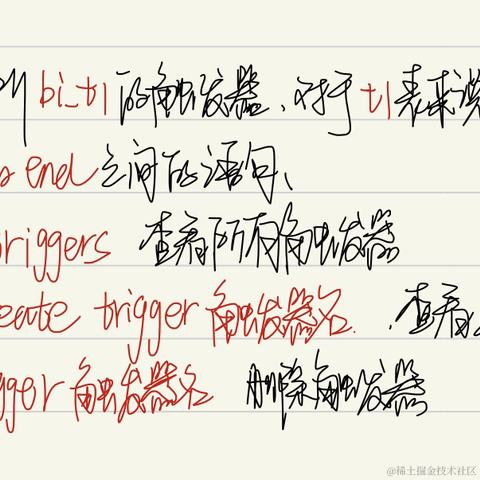 叫bi_t1的触发器、对于t1表来说
end之间的语句、
triggers 查看所有触发器
create trigger 触发器名. 查看
trigger 触发器名 删除触发器
@稀土掘金技术社区